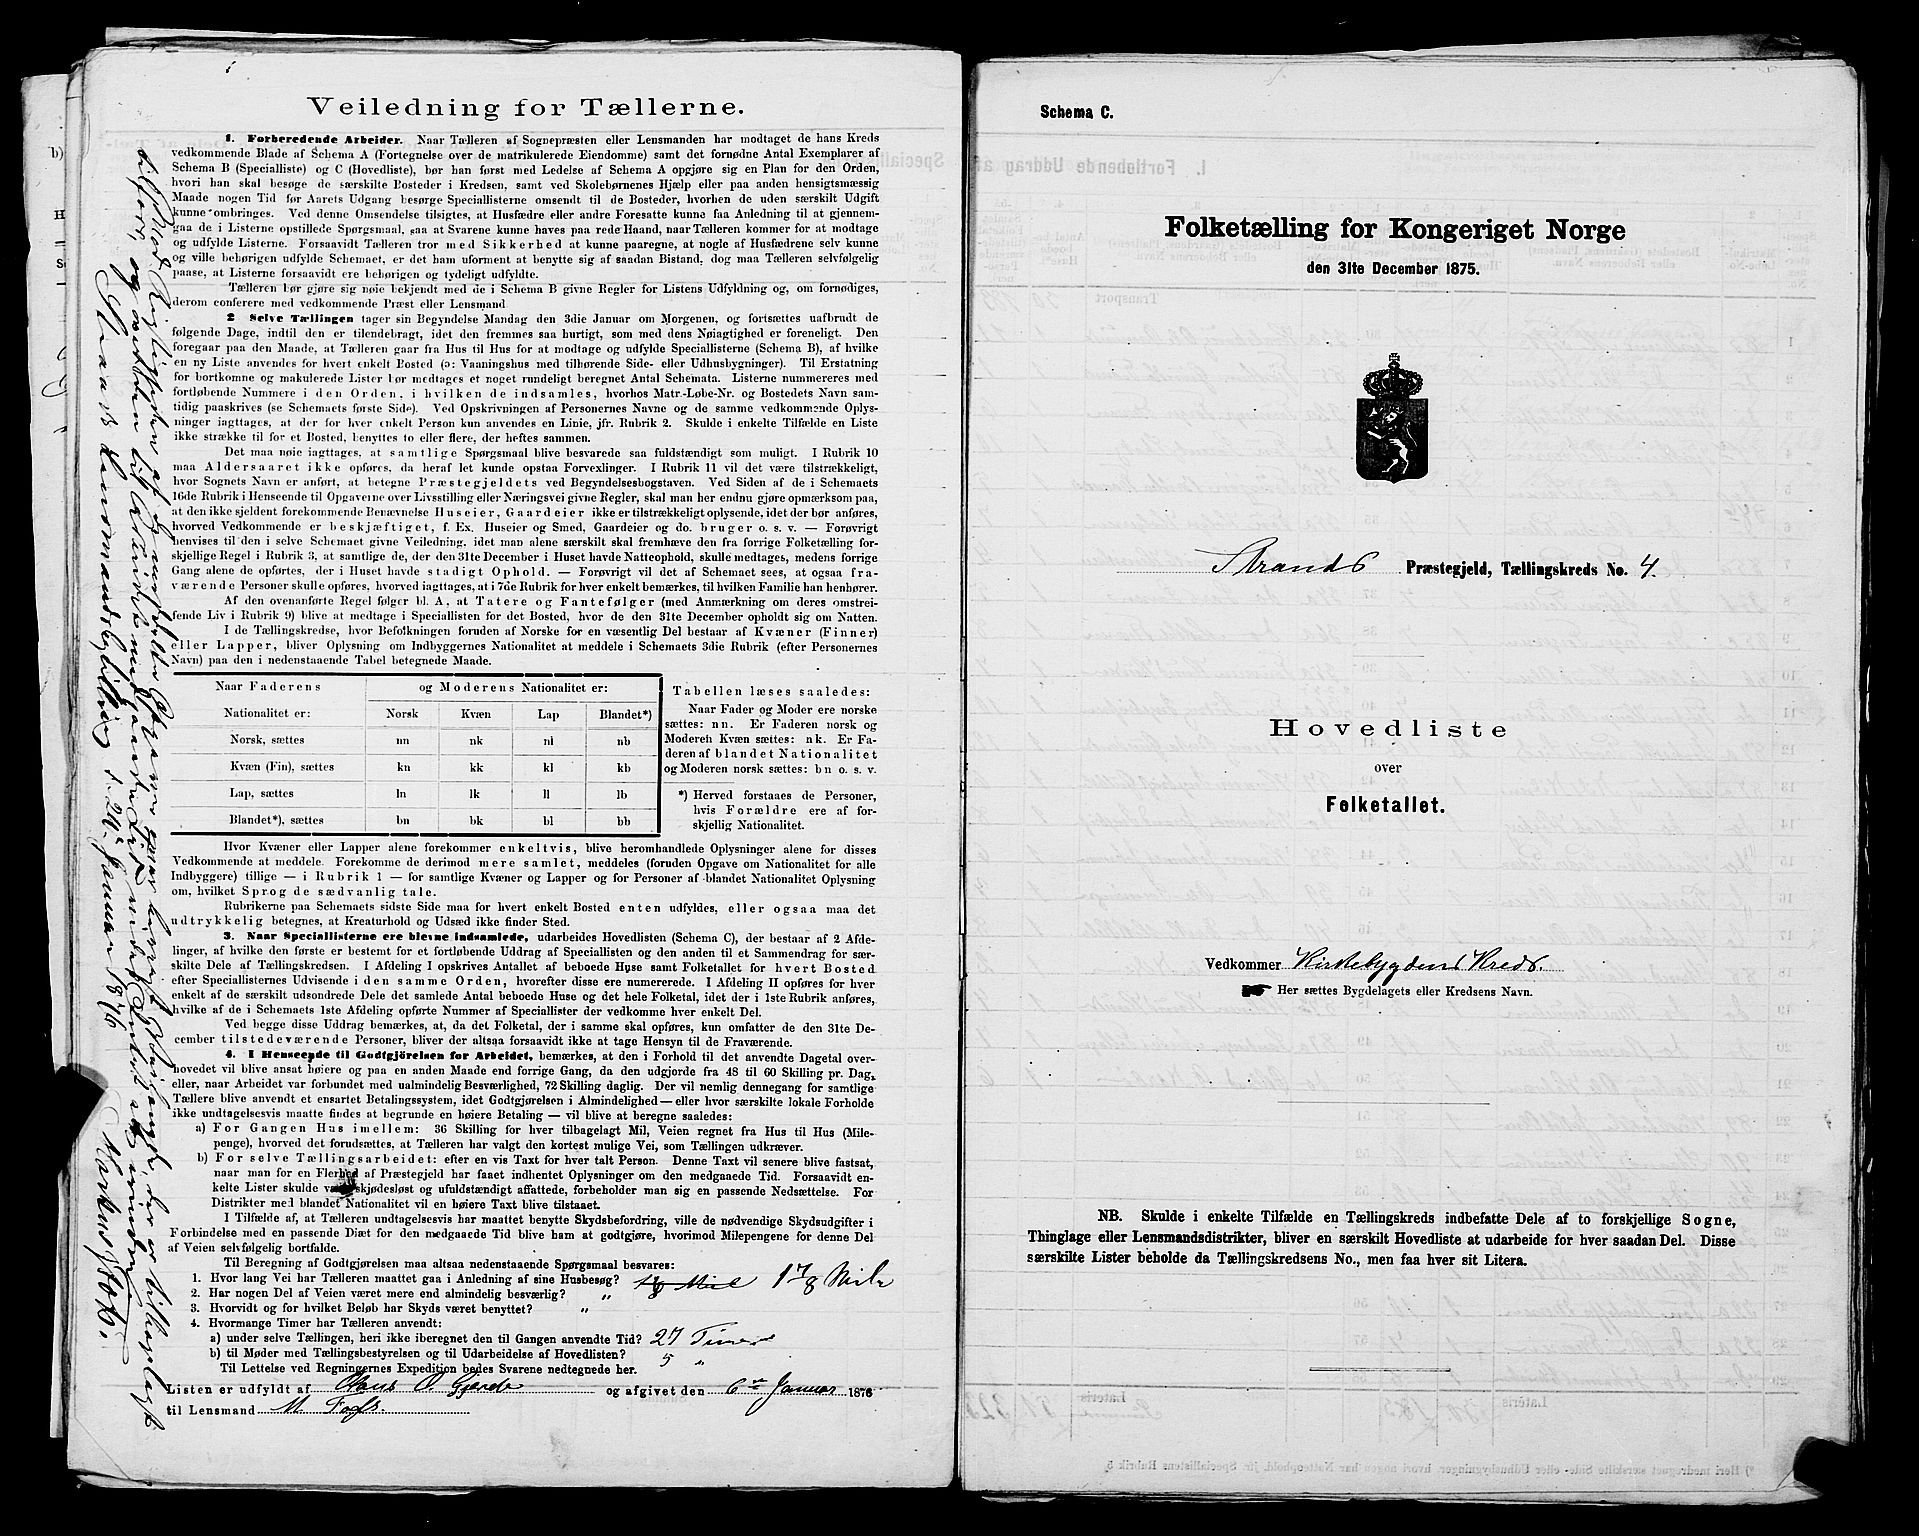 Veiledning for Tællerne.
1. Forberedende Arbeider. Naar Tælleren af Sognepræsten eller Lensmanden har modtaget de hans Kreds
vedkommende Blade af Schema A (Fortegnelse over de matrikulerede Eiendomme) samt det fornødne Antal Exemplarer af
Schema B (Specialliste) og C (Hovedliste), bør han først med Ledelse af Schema A opgjøre sig en Plan for den Orden,
hvori han skal besøge de særskilte Bosteder i Kredsen, samt ved Skolebørnenes Hjælp eller paa anden hensigtsmæssig
Maade nogen Tid før Aarets Udgang besørge Speciallisterne omsendt til de Bosteder, hvorhen de uden særskilt Udgift
kunne ombringes. Ved denne Omsendelse tilsigtes, at Husfædre eller andre Foresatte kunne faa Anledning til at gjennem-
gaa de i Listerne opstillede Spørgsmaal, saa at Svarene kunne haves paa rede Haand, naar Tælleren kommer for at modtage
og udfylde Listerne. Forsaavidt Tælleren tror med Sikkerhed at kunne paaregne, at nogle af Husfædrene selv kunne
og ville behørigen udfylde Schemaet, er det ham uforment at benytte sig af saadan Bistand, dog maa Tælleren selvfølgelig
paase, at Listerne forsaavidt ere behørigen og tydeligt udfyldte.
Tælleren bør gjøre sig nøie bekjendt med de i Schema B givne Regler for Listens Udfyldning og, om fornødiges,
derom conferere med vedkommende Præst eller Lensmand
2 Selve Tællingen tager sin Begyndelse Mandag den 3die Januar om Morgenen, og fortsættes uafbrudt de
følgende Dage, indtil den er tilendebragt, idet den fremmes saa hurtigt, som med dens Nøiagtighed er foreneligt. Den
foregaar paa den Maade, at Tælleren gaar fra Hus til Hus for at modtage og udfylde Speciallisterne (Schema B), af hvilke
en ny Liste anvendes for hvert enkelt Bosted (ɔ: Vaaningshus med tilhørende Side- eller Udhusbygninger). Til Erstatning
for bortkomne og makulerede Lister bør medtages et noget rundeligt beregnet Antal Schemata. Listerne nummereres med
fortløbende Nummere i den Orden, i hvilken de indsamles, hvorhos Matr.-Løbe-Nr. og Bostedets Navn sam-
tidig paaskrives (se Schemaets første Side). Ved Opskrivningen af Personernes Navne og de samme vedkommende Oplys-
ninger iagttages, at der for hver enkelt Person kun anvendes en Linie, jfr. Rubrik 2. Skulde i enkelte Tilfælde en Liste
ikke strække til for et Bosted, benyttes to eller flere, der heftes sammen.
Det maa nøie iagttages, at samtlige Spørgsmaal blive besvarede saa fuldstændigt som muligt. I Rubrik 10
maa Aldersaaret ikke opføres, da heraf let kunde opstaa Forvexlinger. I Rubrik 11 vil det være tilstrækkeligt,
hvor Sognets Navn er anført, at betegne Præstegjeldets ved Begyndelsesbogstaven. Ved Siden af de i Schemaets
16de Rubrik i Henseende til Opgaverne over Livsstilling eller Næringsvei givne Regler, skal man her endnu gjøre opmærksom paa,
at den ikke sjeldent forekommende Benævnelse Huseier, Gaardeier ikke er tilstrækkeligt oplysende, idet der bør anføres,
hvorved Vedkommende er beskjæftiget, f. Ex. Huseier og Smed, Gaardeier og do. bruger o. s. v. — Forøvrigt
henvises til den i selve Schemaet givne Veiledning, idet man alene særskilt skal fremhæve den fra forrige Folketælling for-
skjellige Regel i Rubrik 3, at samtlige de, der den 31te December i Huset havde Natteophold, skulle medtages, medens forrige
Gang alene de opførtes, der i Huset havde stadigt Ophold. — Forøvrigt vil det af Schemaet sees, at ogsaa fra-
værende Personer skulle opføres, hvorved iagttages, at i 7de Rubrik for hver enkelt bemærkes, til hvilken Familie han henhører.
Af den ovenanførte Regel følger bl. A, at Tatere og Fantefølger (med Anmærkning om deres omstrei-
fende Liv i Rubrik 9) blive at medtage i Speciallisten for det Bosted, hvor de den 31te December opholdt sig om Natten.
I de Tællingskredse, hvor Befolkningen foruden af Norske for en væsentlig Del bestaar af Kvæner (Finner)
eller Lapper, bliver Oplysning om Indbyggernes Nationalitet at meddele i Schemaets 3die Rubrik (efter Personernes
Navn) paa den i nedenstaaende Tabel betegnede Maade.
Naar Faderens og Moderens Nationalitet er:
Nationalitet er: Norsk Kvæn Lap Blandet*)
Norsk, sættes nn nk nl nb
Kvæn (Fin), sættes kn kk kl kb
Lap, sættes ln lk ll lb
Blandet*), sættes bn bk bl bb
Tabellen læses saaledes:
Naar Fader og Moder ere norske
sættes: nn. Er Faderen norsk og
Moderen Kvæn sættes: nk. Er Fa-
deren af blandet Nationalitet
og Moderen norsk sættes: bn o. s. v.
*) Herved forstaaes de Personer,
hvis Forældre ere af for-
skjellig Nationalitet.
Hvor Kvæner eller Lapper alene forekommer enkeltvis, blive heromhandlede Oplysninger alene for disses
Vedkommende at meddele. Forekomme de derimod mere samlet, meddeles (foruden Opgave om Nationalitet for alle
Indbyggere) tillige — i Rubrik 1 — for samtlige Kvæner og Lapper og for Personer af blandet Nationalitet Oplysning
om, hvilket Sprog de sædvanlig tale.
Rubrikerne paa Schemaets sidste Side maa for hvert enkelt Bosted enten udfyldes, eller ogsaa maa det
udtrykkelig betegnes, at Kreaturhold og Udsæd ikke finder Sted.
3. Naar Speciallisterne ere blevne indsamlede, udarbeides Hovedlisten (Schema C), der bestaar af 2 Afde-
linger, af hvilke den første er bestemt for et fortløbende Uddrag af Speciallisten og den anden til et Sammendrag for sær-
skilte Dele af Tællingskredsen. I Afdeling I opskrives Antallet af beboede Huse samt Folketallet for hvert Bosted
efter Speciallisternes Udvisende i den samme Orden, hvorefter disse ere numererede. I Afdeling II opføres for hver
enkelt af de særskilt udsondrede Dele det samlede Antal beboede Huse og det hele Folketal, idet der i 1ste Rubrik anføres,
hvilke af de i Schemaets 1ste Afdeling opførte Nummer af Speciallister der vedkomme hver enkelt Del.
Ved begge disse Uddrag bemærkes, at, da det Folketal, der i samme skal opføres, kun omfatter de den 31te De-
cember tilstedeværende Personer, bliver der altsaa forsaavidt ikke at tage Hensyn til de Fraværende.
4. I Henseende til Godtgjörelsen for Arbeidet, bemærkes, at den i Forhold til det anvendte Dagetal over-
hovedet vil blive ansat høiere og paa en anden Maade end forrige Gang, da den udgjorde fra 48 til 60 Skilling pr. Dag,
eller, naar Arbeidet var forbundet med ualmindelig Besværlighed, 72 Skilling daglig. Der vil nemlig dennegang for samtlige
Tællere blive anvendt et ensartet Betalingssystem, idet Godtgjørelsen i Almindelighed — eller hvor særskilte lokale Forholde
ikke undtagelsesvis maatte findes at begrunde en høiere Betaling — vil blive at beregne saaledes:
a) For Gangen Hus imellem: 36 Skilling for hver tilbagelagt Mil, Veien regnet fra Hus til Hus (Mile-
penge), hvorved det forudsættes, at Tælleren har valgt den kortest mulige Vei, som Tællingen udkræver.
b) For selve Tællingsarbeidet: efter en vis Taxt for hver talt Person. Denne Taxt vil senere blive fastsat,
naar man for en Flerhed af Præstegjeld har faaet indhentet Oplysninger om den medgaaede Tid. Forsaavidt en-
kelte Lister skulde være skjødesløst og ufuldstændigt affattede, forbeholder man sig en passende Nedsættelse. For
Distrikter med blandet Nationalitet vil en høiere Taxt blive tilstaaet.
I Tilfælde af, at Tælleren undtagelsesvis har maattet benytte Skydsbefordring, ville de nødvendige Skydsudgifter i
Forbindelse med en passende Diæt for den medgaaede Tid blive ham at godtgjøre, hvorimod Milepengene for denne Del
af Veien selvfølgelig bortfalde.
Til Beregning af Godtgjørelsen maa altsaa nedenstaaende Spørgsmaal besvares:
1. Hvor lang Vei har Tælleren maattet gaa i Anledning af sine Husbesøg? 1 7/8 Mile
2. Har nogen Del af Veien været mere end almindelig besværlig? „
3. Hvorvidt og for hvilket Beløb har Skyds været benyttet? „
4. Hvormange Timer har Tælleren anvendt:
a) under selve Tællingen, heri ikke iberegnet den til Gangen anvendte Tid? 27 Timer
b) til Møder med Tællingsbestyrelsen og til Udarbeidelse af Hovedlisten? 5 „
Til Lettelse ved Regningernes Expedition bedes Svarene nedtegnede her.
Listen er udfyldt af Hans O. Gjerde og afgivet den 6te Januar 1876
til Lensmand M Fogs.
Schema C.
Folketælling for Kongeriget Norge
den 31te December 1875.
Strands Præstegjeld, Tællingskreds No. 4.
Hovedliste
over
Folketallet.
Vedkommer Kirkebygdens Kreds.
Her sættes Bygdelagets eller Kredsens Navn.
NB. Skulde i enkelte Tilfælde en Tællingskreds indbefatte Dele af to forskjellige Sogne,
Thinglage eller Lensmandsdistrikter, bliver en særskilt Hovedliste at udarbeide for hver saadan Del. Disse
særskilte Lister beholde da Tællingskredsens No., men faa hver sit Litera.